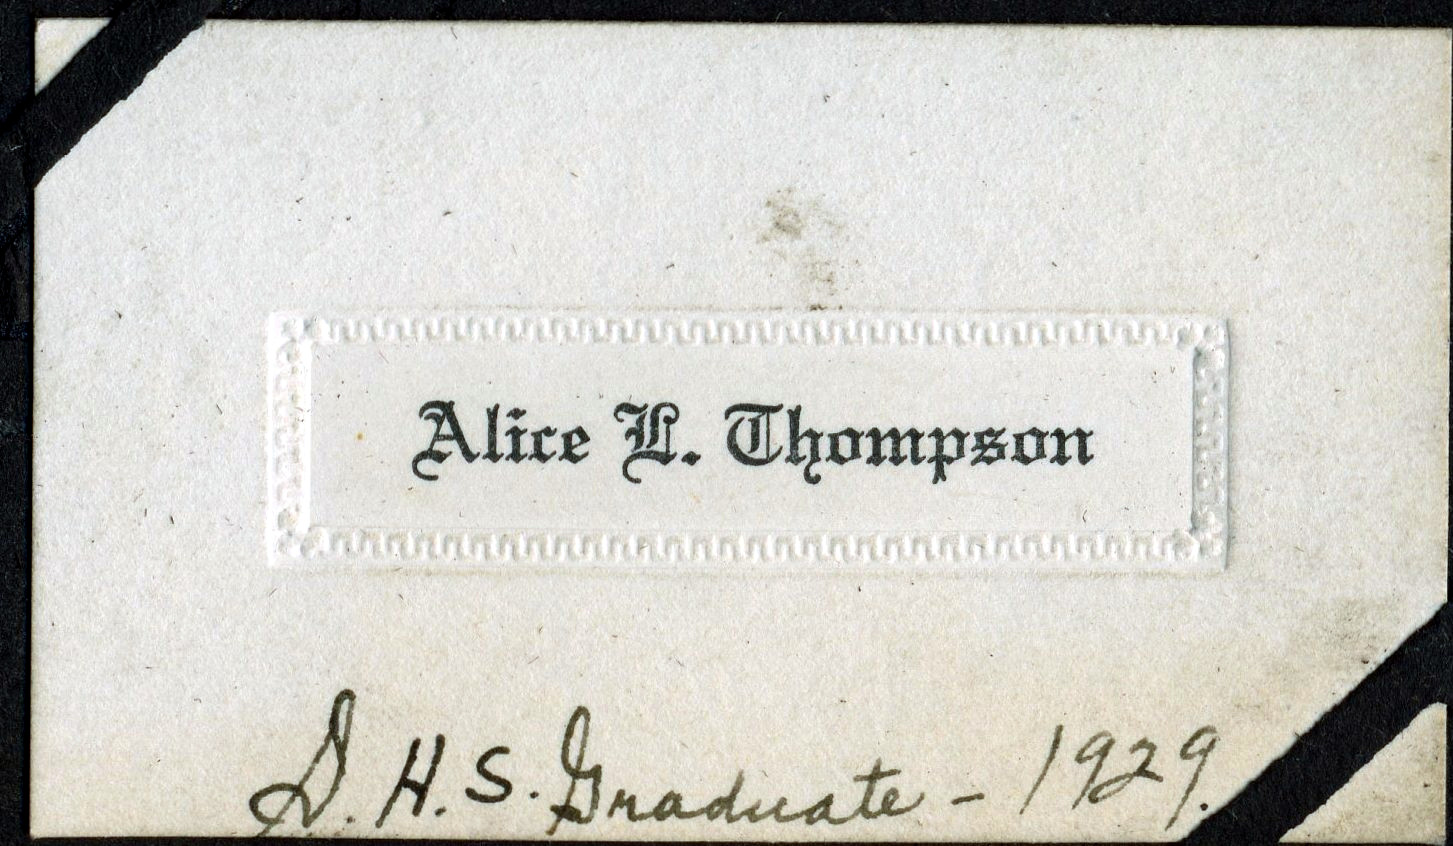 Alice L. Thompson
D. H. S. Graduate - 1929.